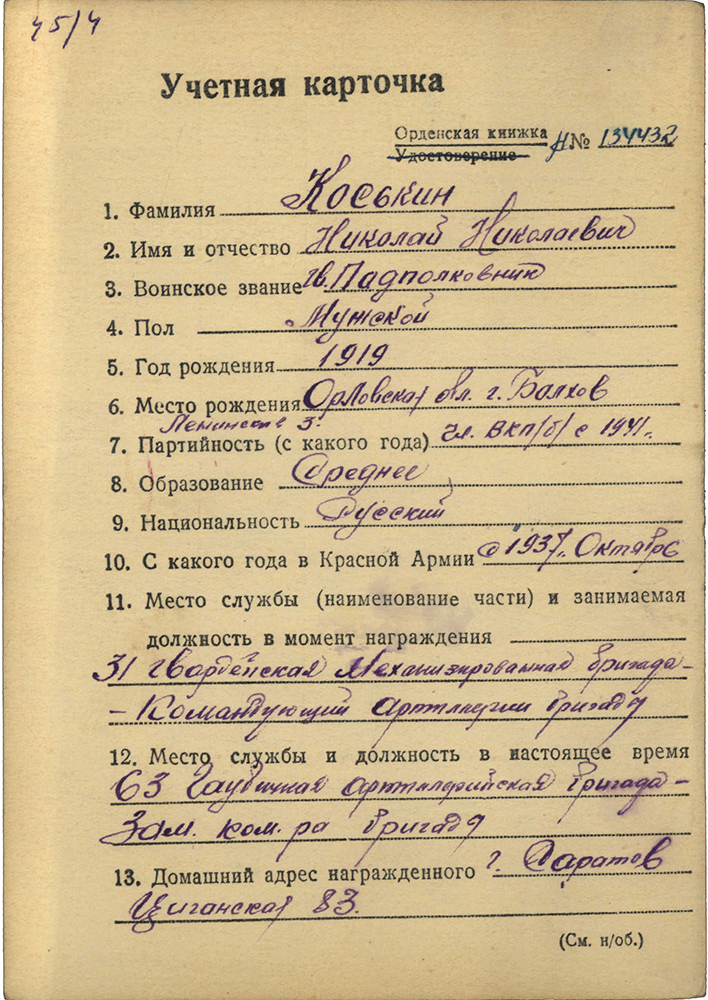 45/4
Учетная карточка
Орденская книжка
Удостоверение
Н№ 134432
1. Фамилия Коськин
2. Имя и отчество Николай Николаевич
3. Воинское звание гв. Падполковник
4. Пол Мужской
5. Год рождения 1919
6. Место рождения Орловская обл. г. Балхов
7. Партийность (с какого года) Чл. ВКП/б/ с 1941г.
8. Образование Среднее
9. Национальность Русский
10. С какого года в Красной Армии с 1937г. Октябрь
11. Место службы (наименование части) и занимаемая
должность в момент награждения
31 Гвардейская Механизированная бригада –
– Командующий артиллерии бригады
12. Место службы и должность в настоящее время
63 Гаубичная артиллерийская бригада –
Зам. ком. ра бригады
13. Домашний адрес награжденного г. Саратов
Циганская 83.
(См. н/об.)